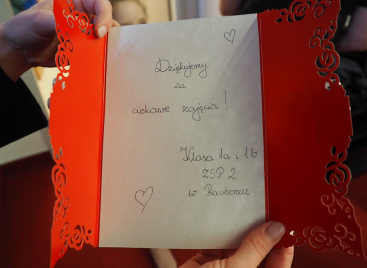 Dziękujemy
za
ciekawe zajęcia!
Klasa 1a i 1b
ZSP 2
w Raciborzu